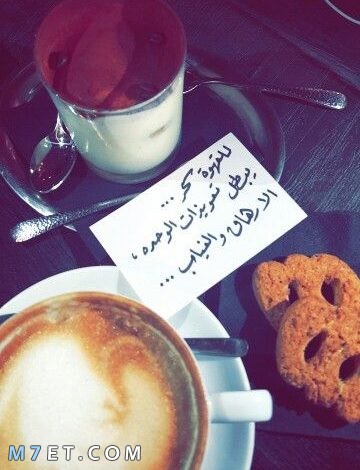 للقهوة سحر ...
يبطل تعويذات الوحده ،
الارهاق والغياب ...
M7ET.COM